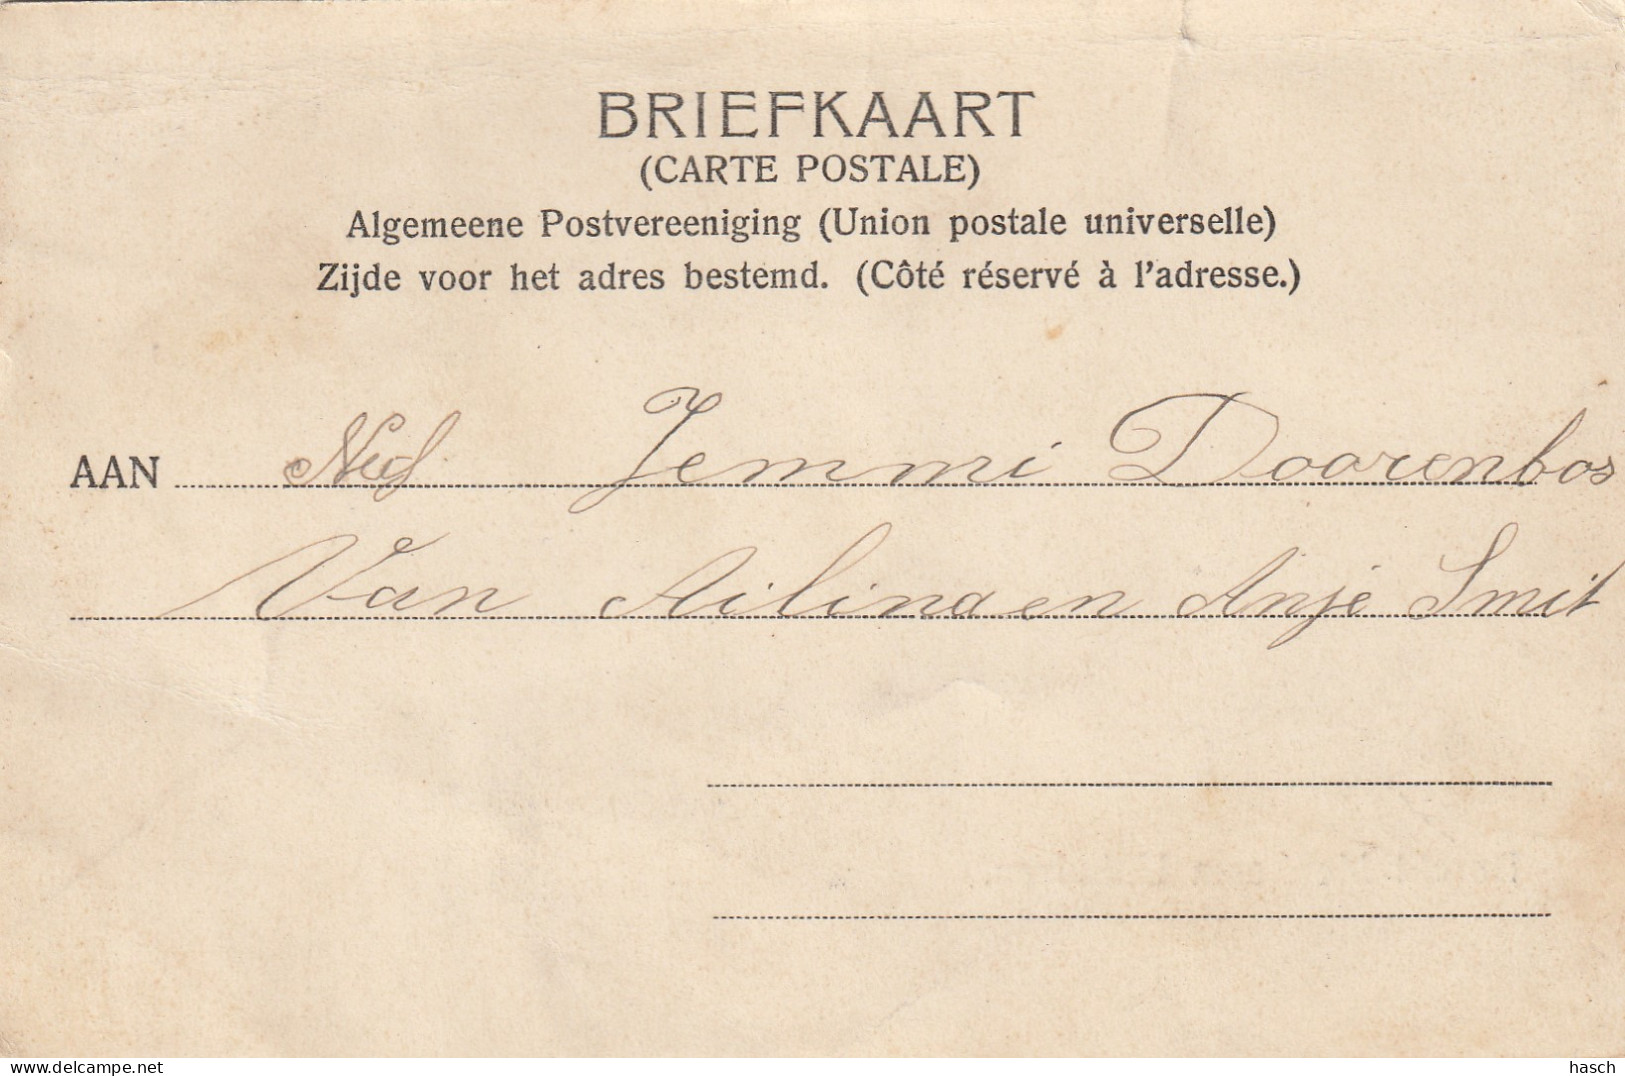 BRIEFKAART
(CARTE POSTALE)
Algemeene Postvereeniging (Union postale universelle)
Zijde voor het adres bestemd. (Côté réservé à l'adresse.)
AAN Neef Jemmi Doorenbos
Van Ailina en Anje Smit
delcampe.net
hasch